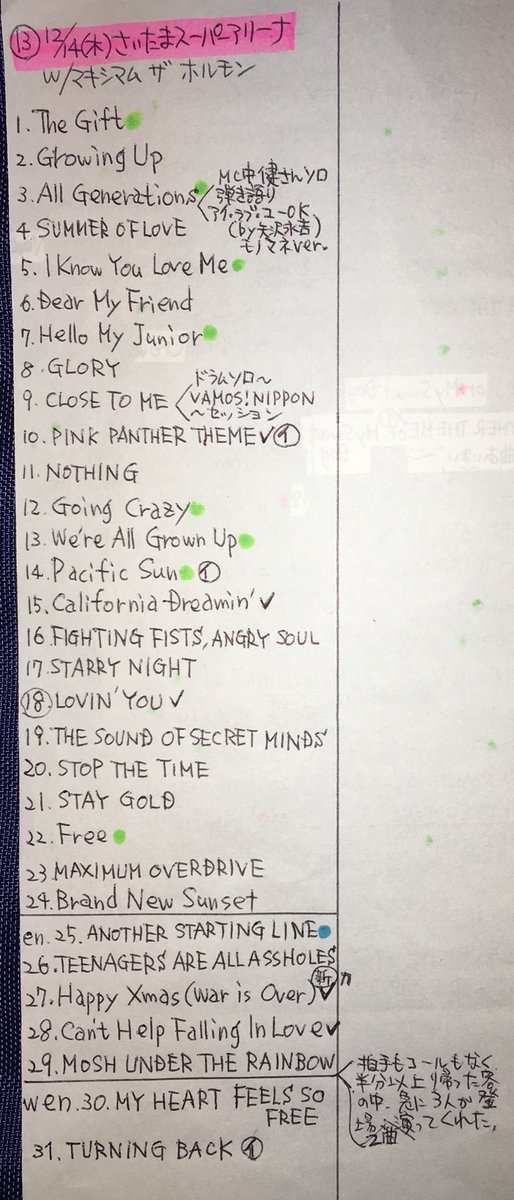 ⑬ 12/14(木)さいたまスーパーアリーナ
W/マキシマム ザ ホルモン
1. The Gift
2. Growing Up
3. All Generations
MC中健さんソロ
弾き語り
アイ・ラブ・ユーOK
(by 矢沢永吉)
モノマネver.
4 SUMMER OF LOVE
5. I Know You Love Me
6. Dear My Friend
7. Hello My Junior
8. GLORY
9. CLOSE TO ME
ドラムソロ〜
VAMOS! NIPPON
〜セッション
10. PINK PANTHER THEME✓①
11. NOTHING
12. Going Crazy
13. We're All Grown Up
14. Pacific Sun ①
15. California Dreamin' ✓
16 FIGHTING FISTS, ANGRY SOUL
17. STARRY NIGHT
⑱ LOVIN' YOU ✓
19. THE SOUND OF SECRET MINDS
20. STOP THE TIME
21. STAY GOLD
22. Free
23 MAXIMUM OVERDRIVE
24. Brand New Sunset
en. 25. ANOTHER STARTING LINE
26. TEENAGERS ARE ALL ASSHOLES
27. Happy Xmas (War is Over) ✓ 新
28. Can't Help Falling In Love ✓
29. MOSH UNDER THE RAINBOW
wen. 30. MY HEART FEELS SO
FREE
31. TURNING BACK ①
拍手もコールもなく
半分以上帰った客
の中、急に3人が登
場、演ってくれた。
2曲